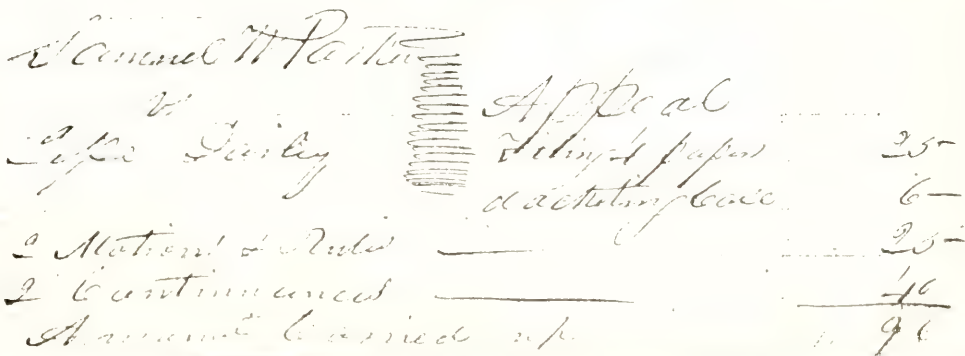 Samuel W Parker
vs Appeal
Filing 4 papers 25
docketing Cause 6
2 Motions & Rules 25
2 Continuances 40
Amount Carried up 96